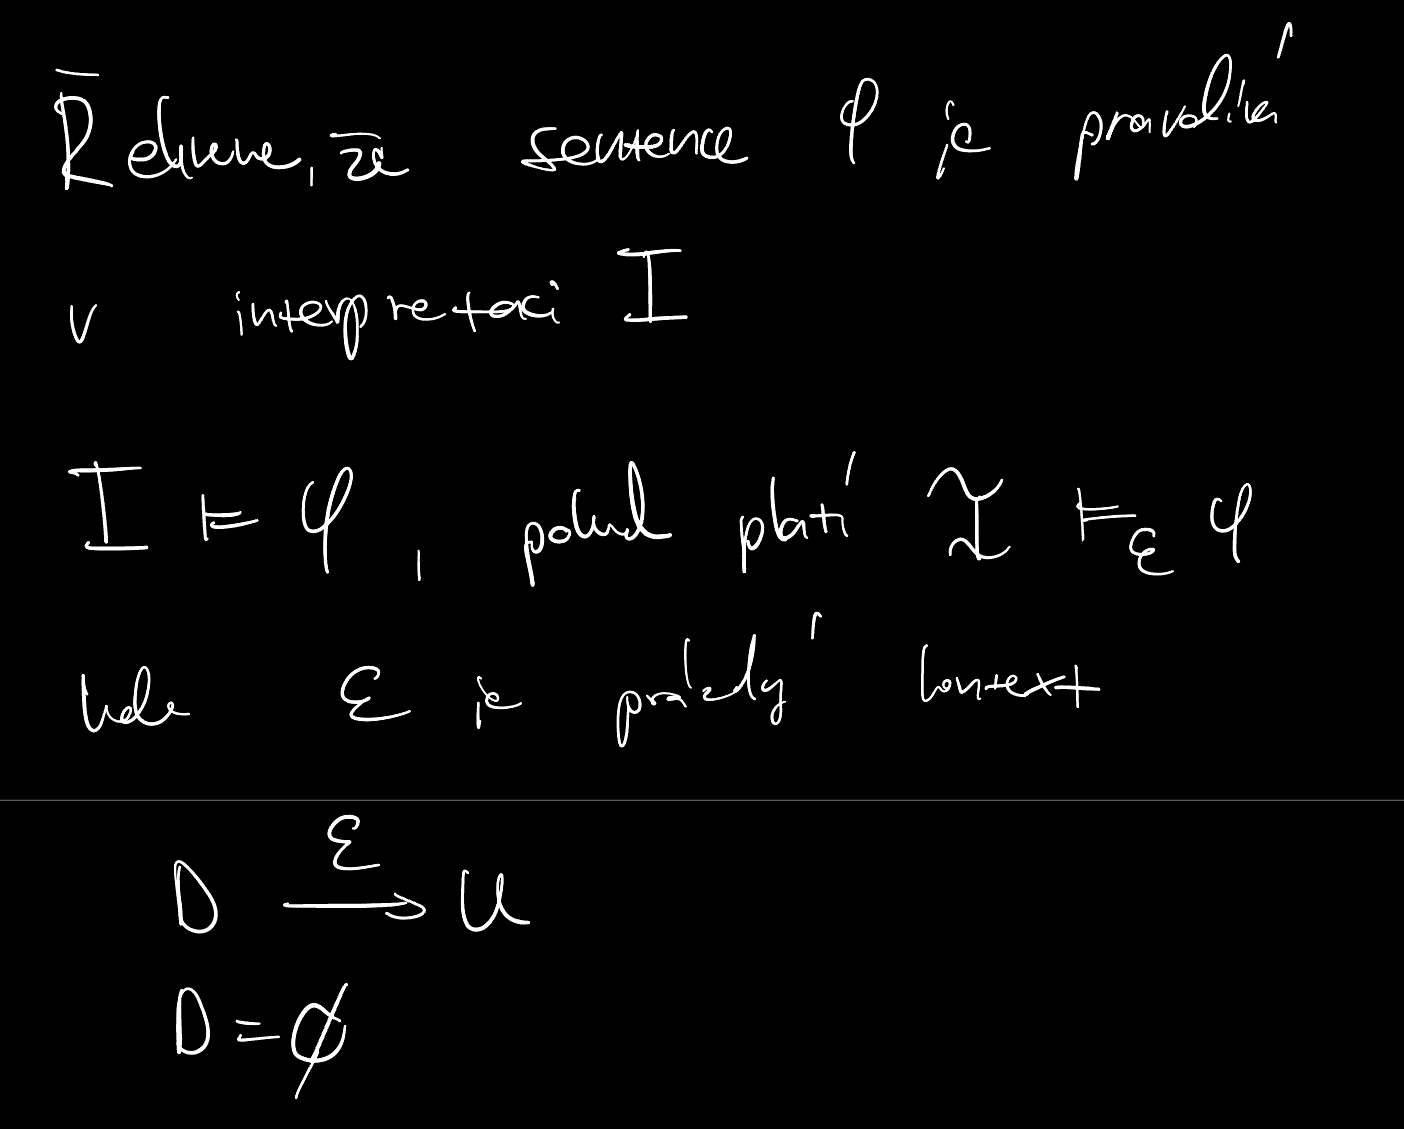 Řekneme, že sentence φ je pravdivá
v interpretaci I
I ⊨ φ, pokud platí I ⊨_ε φ
kde ε je prázdný kontext
D →^ε U
D = ∅